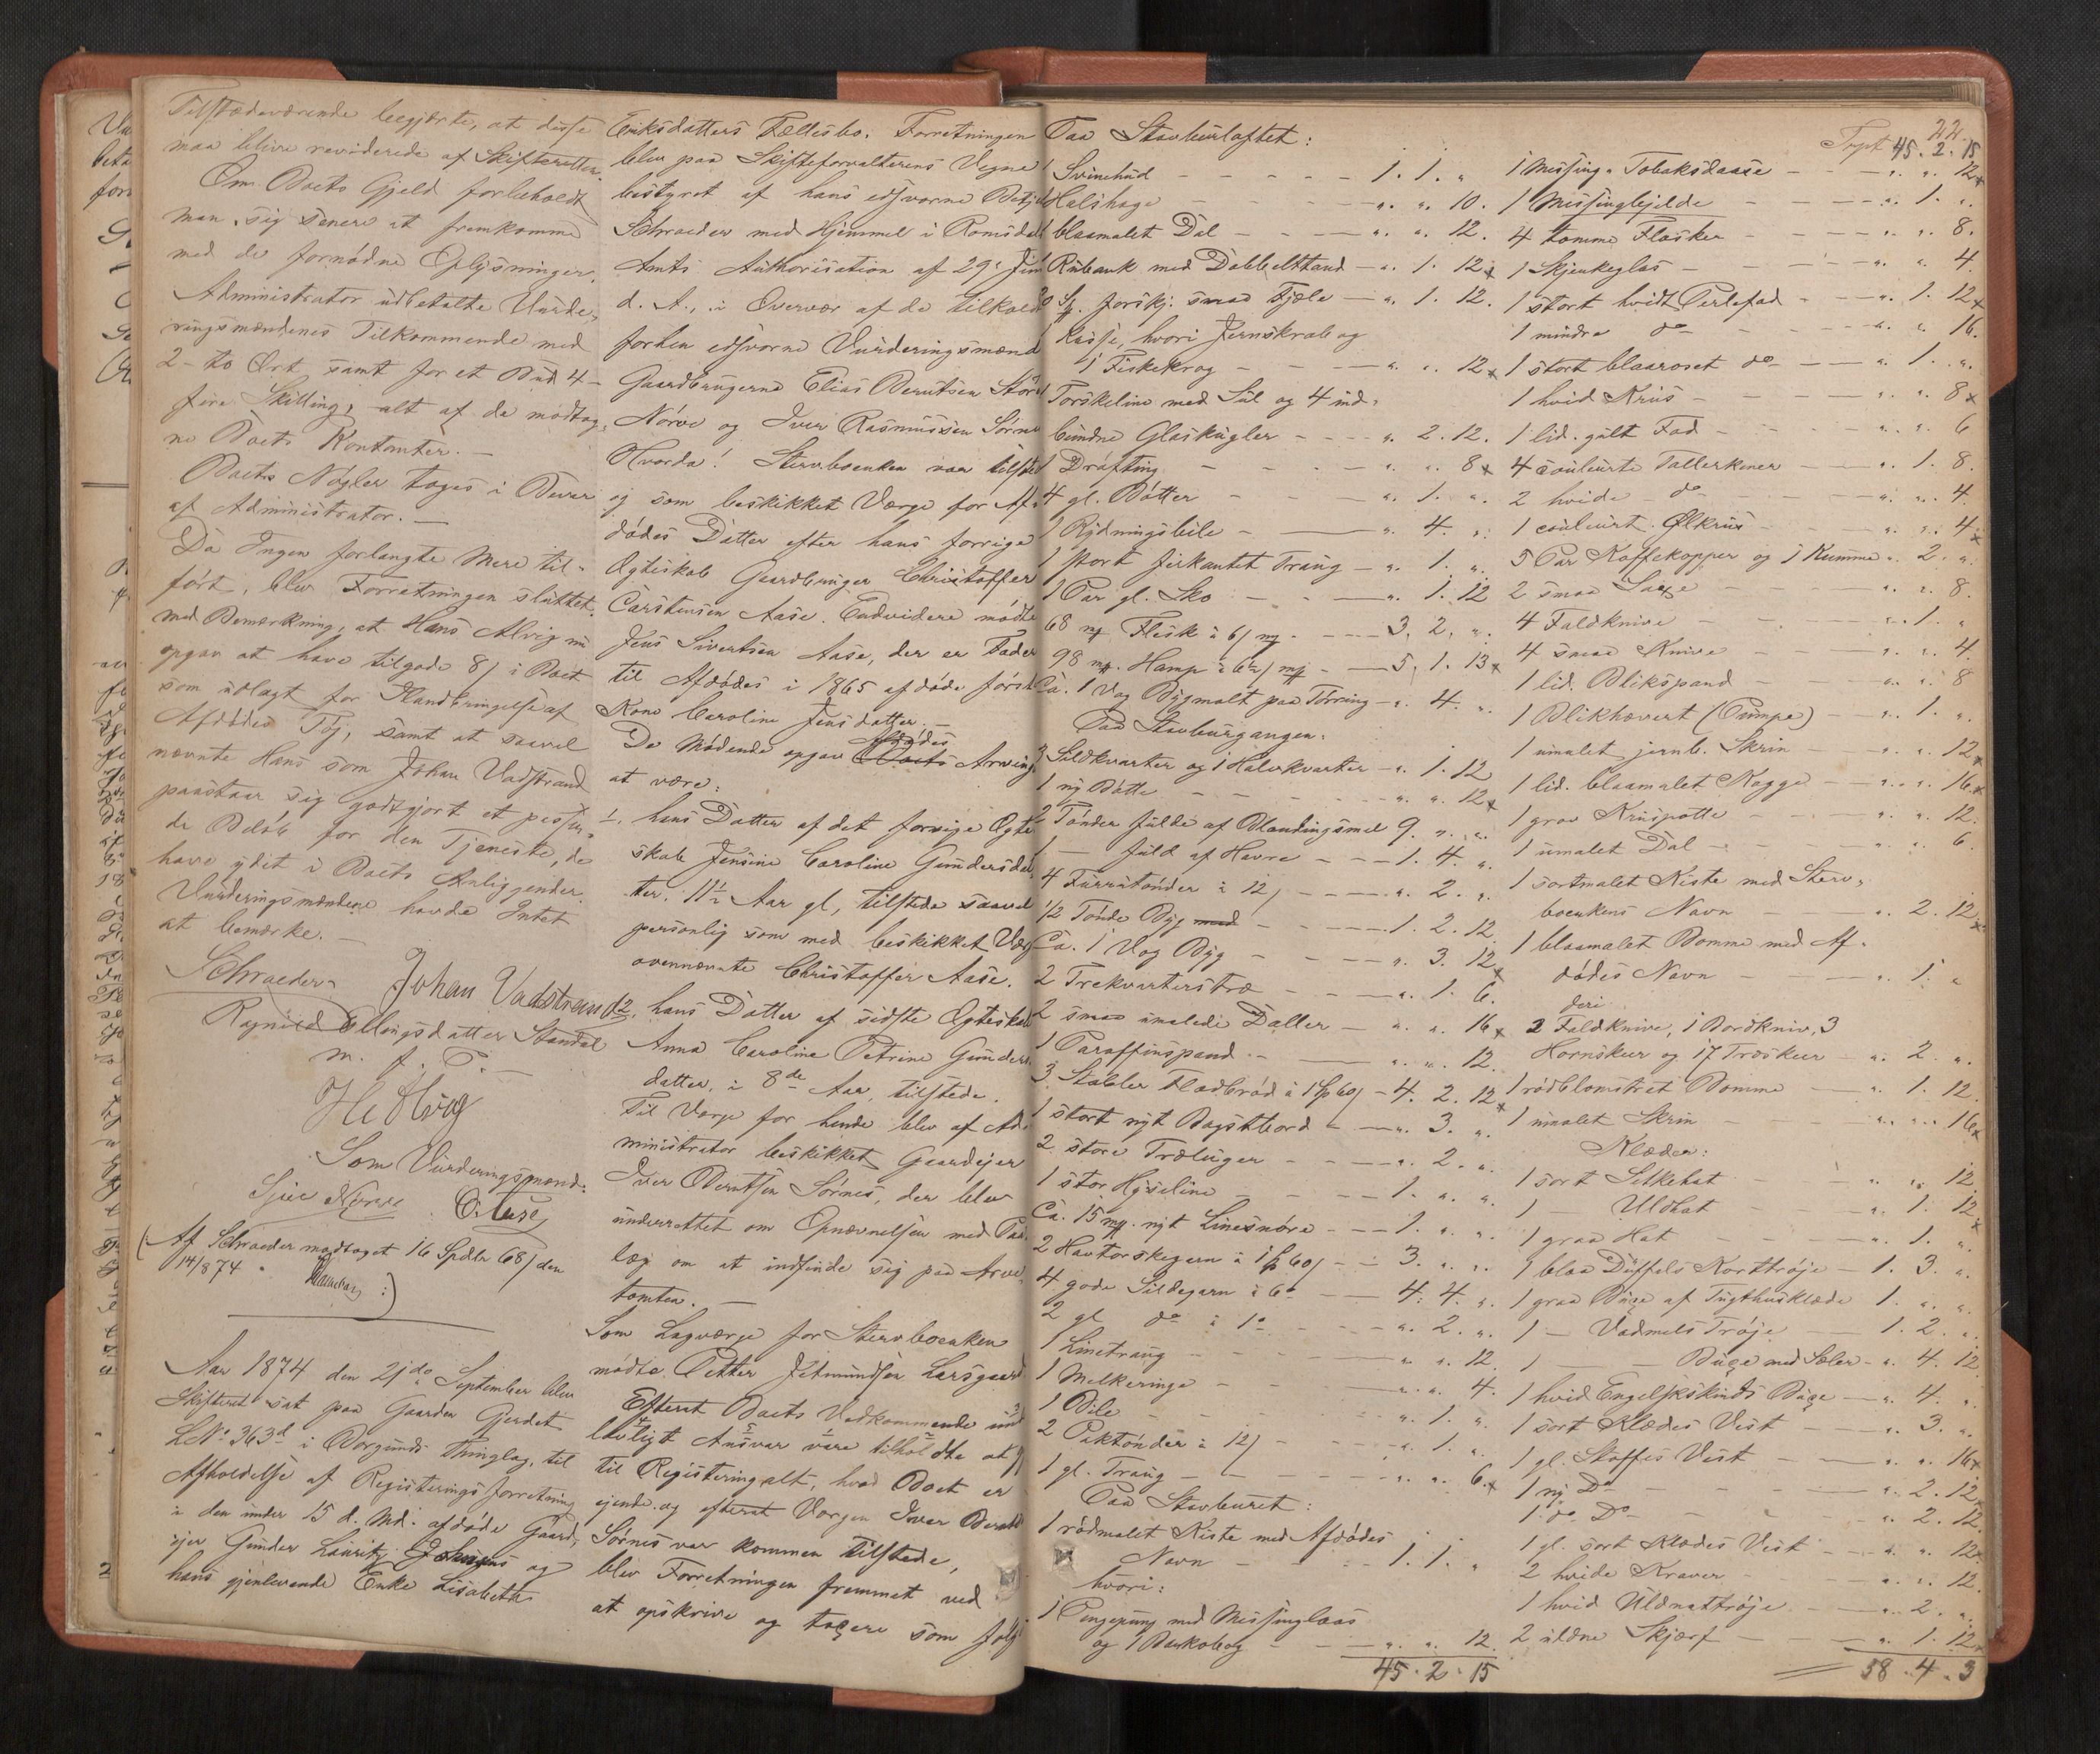 Tilstædeværende begjærte, at disse
maa blive reviderede af Skifteretten.
Om Boets Gjeld forbeholdt
man sig senere at fremkomme
med de fornødne Oplysninger.
Administrator udbetalte Vurde-
ringsmændenes Tilkommende med
2 - to Ort samt for et Bud 4 -
fire Skilling, alt af de modtag-
ne Boets Kontanter. —
Boets Nøgler toges i Bevar
af Administrator. —
Da Ingen forlangte Mere til-
ført, blev Forretningen sluttet
med Bemærkning, at Hans Alvig nu
opgav at have tilgode 8 i Boet
som udlagt for Istandbringelse af
Afdødes Tøj, samt at saavel
nævnte Hans som Johan Vadstrand
paastaar sig godtgjort et passen-
de Beløb for den Tjeneste, de
have ydet i Boets Anliggender.
Vurderingsmændene havde Intet
at bemærke. —
Schroeder Johan Vadstrand
Ragnild Ellingsdatter Standal
m. f. P. —
H Alvig
Som Vurderingsmænd:
Nørve O. Aase
(Af Schroeder modtaget 16 Spdlr 68 den
14/8 74
Aar 1874 den 21de September blev
Skifteret sat paa Gaarden Gjerdet
L. No 363d i Borgunds Thinglag, til
Afholdelse af Registeringsforretning
i den under 15 d. Md. afdøde Gaard-
ejer Gunder Lauritz Johnsens og
hans gjenlevende Enke Lisabeth
Eriksdatters Fællesbo. Forretningen
blev paa Skifteforvalterens Vegne
bestyret af hans edsvorne Betj
Schroeder med Hjemmel i Romsdals
Amts Authorisation af 29de Juni
d. A., i Overvær af de tilkaldte
forhen edsvorne Vurderingsmænd
Gaardbrugerne Elias Berntsen Store
Nørve og Iver Rasmussen Sørnes
Hvorda: Stervboenken var tilstede
og som beskikket Værge for Af-
dødes Datter efter hans forrige
Ægteskab Gaardbruger Christoffer
Carstensen Aase. Endvidere mødte
Jens Sivertsen Aase, der er Fader
til Afdødes i 1865 afdøde første
Kone Caroline Jensdatter. —
De Mødende opgav Boets Afdødes Arving
at være:
1. hans Datter af det forrige Ægte
skab Jensine Caroline Gundersdat
ter, 11 1/2 Aar gl, tilstede saavel
personlig som med beskikket Vær
ovennævnte Christoffer Aase.
2. hans Datter af sidste Ægteskab
Anna Caroline Petrine Gunders
datter, i 8de Aar, tilstede.
Til Værge for hende blev af Ad-
ministrator beskikket Gaardejer
Iver Berntsen Sørnes, der blev
underrettet om Opnævnelsen med Paa-
læg om at indfinde sig paa Arve-
tomten. —
Som Lagværge for Stervboenken
mødte Petter Jetmundsen Larsgaard
Efterat Boets Vedkommende under
lovligt Ansvar vare tilholdte at
til Registering alt, hvad Boet er
ejende og efterat Værgen Iver Berntsen
Sørnes var kommen tilstede,
blev Forretningen fremmet ved
at opskrive og taxere som følg
Paa Stavburloftet:
1 Svinehud - - - 1. 1. "
1 Halshage - - - ". ". 10.
1 blaamalet Dal - - - ". ". 12.
1 Rubank med Dobbelttand - ". 1. 12 x
20 St. forskj. smaa Fjæle - ". 1. 12.
1 Kasse, hvori Jernskrab og
1 Fiskekrog - - - ". ". 12 x
1 Torskeline med Sul og 4 ind-
bundne Glaskugler - - - ". 2. 12.
1 Drøfting - - - ". ". 8 x
4 gl. Bøtter - - - ". 1. ".
1 Rydningsbile - ". 4. ".
1 stort firkantet Traug - ". 1. ".
1 Par gl. Sko - - ". 1. 12
68 mk Flesk à 6 mk - - 3. 2. ".
98 mk. Hamp à 6 1/2 mk - 5. 1. 13 x
Ca. 1 Vog Bygmalt paa Tørring - ". 4. ".
Paa Stavburgangen:
3 Saldkvarter og 1 Halvkvarter - ". 1. 12
1 ny Bøtte - - - ". ". 12 x
2 Tønder fulde af Blandingsmel 9. ". ".
1 — fuld af Havre - - 1. 4. ".
4 Furrutønder à 12 - - ". 2. ".
1/2 Tønde Byg med - - 1. 2. 12.
Ca. 1 Vog Byg - - - ". 3. 12 x
2 Trekvarterstræ - - ". 1. 6.
2 smaa umalede Daller - ". ". 16 x
1 Paraffinspand - - ". ". 12.
3 Stabler Fladbrød à 1 60 - 4. 2. 12 x
1 stort nyt Bagstbord - ". 3. ".
2 store Træluger - - ". 2. ".
1 stor Hyseline - - 1. ". ".
Ca. 15 mk. nyt Linesnøre - - 1. ". ".
2 Havtorskegarn à 1 60 - - 3. ". ".
4 gode Sildegarn à 6 - 4. 4. ".
2 gl do à 1 - - ". 2. ".
1 Linetraug - - ". ". 12.
1 Melkeringe - - ". ". 4.
1 Bile - - ". 1. ".
2 Paktønder à 12 - - ". 1. ".
1 gl. Traug - - ". ". 6. x
Paa Stavburet:
1 rødmalet Kiste med Afdødes
Navn - - - 1. 1. "
hvori:
1 Pengepung med Messinglaas
og 1 Bankobog - - ". ". 12.
45. 2. 15
22.
Tspt 45. 2. 15
1 Messing-Tobaksdaase - - ". ". 12 x
1 Messingbjelde - - ". 1. ".
4 tomme Flasker - - ". ". 8.
1 Skjenkeglas - - ". ". 4.
1 stort hvidt Perlefad - - ". 1. 12 x
1 mindre do - - ". ". 16.
1 stort blaaroset do - - ". 1. ".
1 hvid Krus - - ". ". 8 x
1 lid. gult Fad - - ". ". 6
4 couleurte Tallerkener - ". 1. 8.
2 hvide do - - ". ". 4.
1 couleurt Ølkrus - - ". ". 4 x
5 Par Kaffekopper og 1 Kumme ". 2. ".
2 smaa Saxe - - ". ". 8.
4 Faldknive - - ". 1. "
4 smaa Knive - - ". ". 4.
1 lid. Blikspand - - ". ". 8
1 Blikhævert (Pumpe) - ". 1. ".
1 umalet jernb. Skrin - ". ". 12 x
1 lid. blaamalet Kagge - ". ". 16 x
1 grov Kruspotte - - ". ". 12.
1 umalet Dal - - ". ". 6.
1 sortmalet Kiste med Sterv-
boenkens Navn - - ". 2. 12 x
1 blaamalet Bomme med Af-
dødes Navn - - ". 1. "
deri
2 Faldknive, 1 Bordkniv, 3
Hornskeer og 17 Træskeer - ". 2. ".
1 rødblomstret Bomme - ". 1. 12.
1 umalet Skrin - - ". ". 16 x
Klæder:
1 sort Silkehat - - ". ". 12.
1 — Uldhat - - ". 1. 12 x
1 graa Hat - - ". 1. ".
1 blaa Duffels Korttrøje - 1. 3. ".
1 graa Buxe af Tugthusklæde 1. ". ".
1 — Vadmels Trøje - 1. 2. ".
1 — — Buxe med Seler - ". 4. 12
1 hvid Engelskskinds Buxe - ". 4. ".
1 sort Klædes Vest - ". 3. ".
1 gl. Stoffes Vest - - ". ". 16 x
1 ny Do - - ". 2. 12.
1 do Do - - ". 2. 12.
1 gl. sort Klædes Vest - ". ". 12 x
2 hvide Kraver - - ". ". 12.
1 hvid Uldnattrøje - ". 2. ".
2 uldne Skjærf - ". 1. 12 x
58. 4. 3